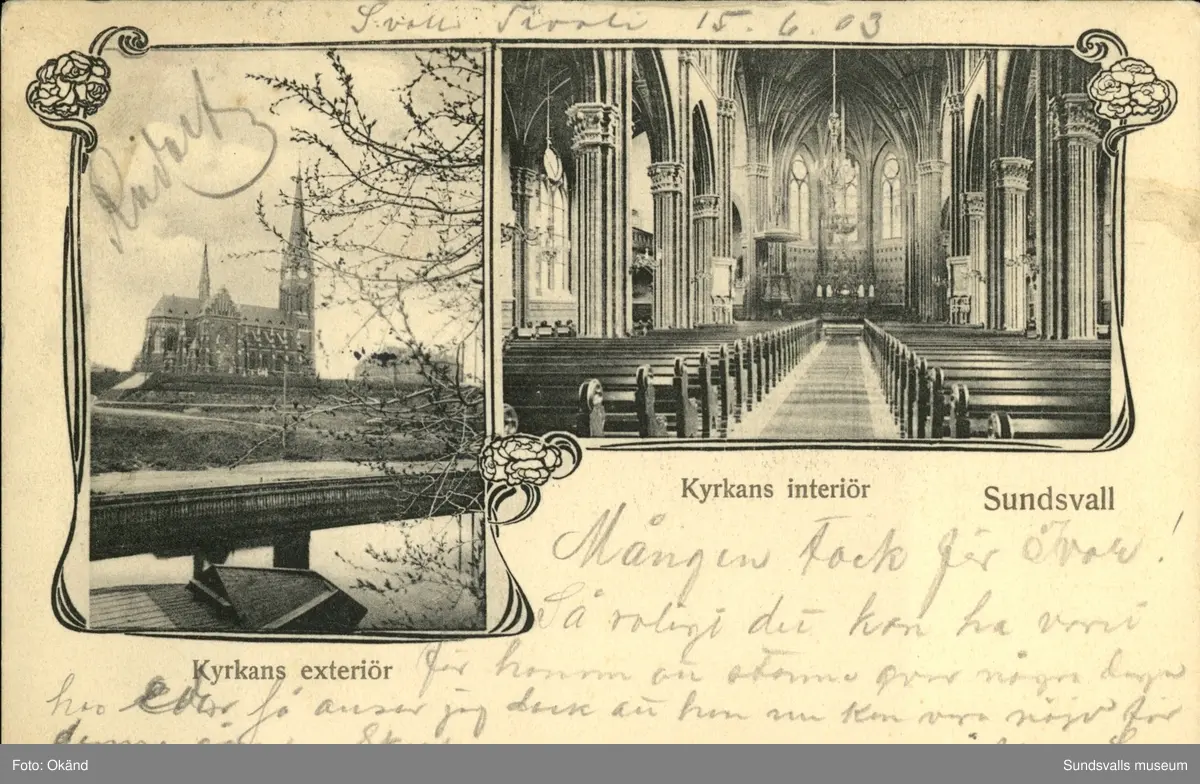 Svall Tivoli 15.6.03
Kyrkans interiör
Sundsvall
Mången Tack för Ivar!
Så roligt det kan ha varit
Kyrkans exteriör
för honom att stanna över några dagar
hos Eder så anser jag dock att han nu kan vara nöjd för
denna
Foto: Okänd
Sundsvalls museum